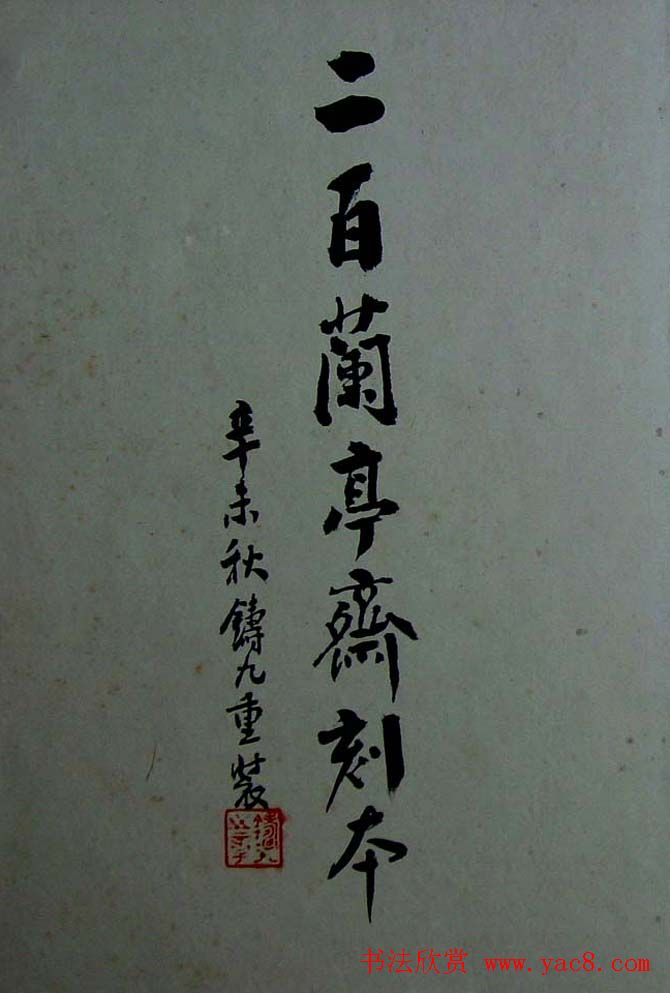 二百蘭亭齋刻本
辛未秋鑄九重裝
书法欣赏 www.yac8.com